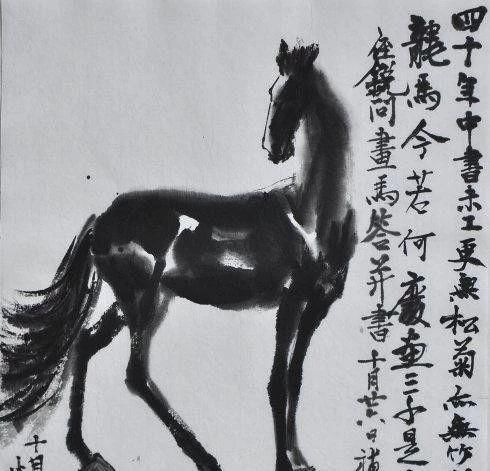 四十年中書未工更無松菊亦無竹
龍馬今若何廢畫三千是
座鏡問畫馬答并書 十月廿六日
十月